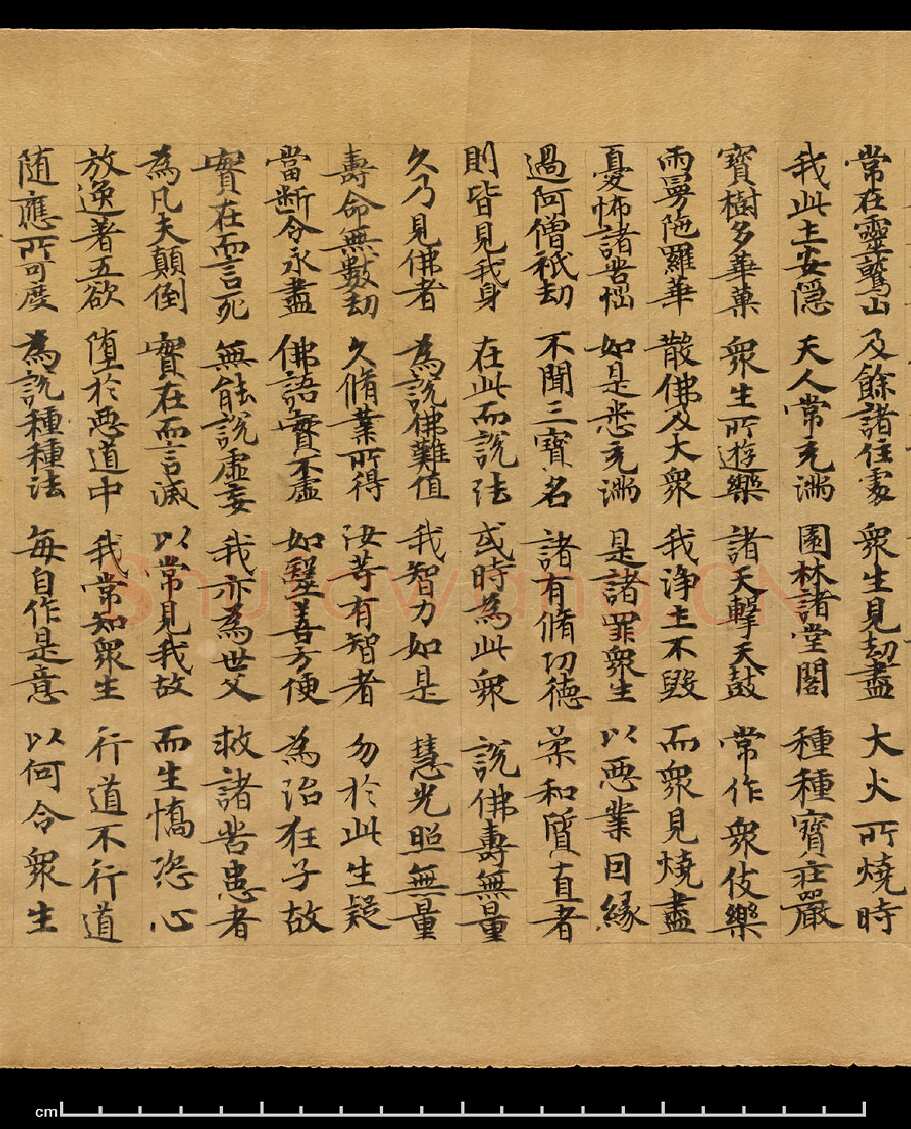 常在靈鷲山 及餘諸住處 衆生見劫盡 大火所燒時
我此土安隱 天人常充滿 園林諸堂閣 種種寶莊嚴
寶樹多華菓 衆生所遊樂 諸天擊天鼓 常作衆伎樂
雨曼陁羅華 散佛及大衆 我淨土不毀 而衆見燒盡
憂怖諸苦惱 如是悉充滿 是諸罪衆生 以惡業因緣
過阿僧祇劫 不聞三寶名 諸有脩功德 柔和質直者
則皆見我身 在此而說法 或時為此衆 說佛壽無量
久乃見佛者 為說佛難值 我智力如是 慧光照無量
壽命無數劫 久脩業所得 汝等有智者 勿於此生疑
當斷令永盡 佛語實不虛 如醫善方便 為治狂子故
實在而言死 無能說虛妄 我亦為世父 救諸苦患者
為凡夫顛倒 實在而言滅 以常見我故 而生憍恣心
放逸著五欲 墮於惡道中 我常知衆生 行道不行道
随應所可度 為說種種法 每自作是意 以何令衆生
Shufawang.CN
cm